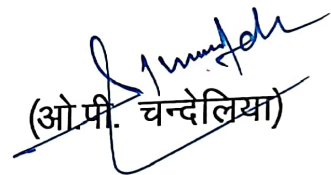 (ओ.पी. चन्देलिया)